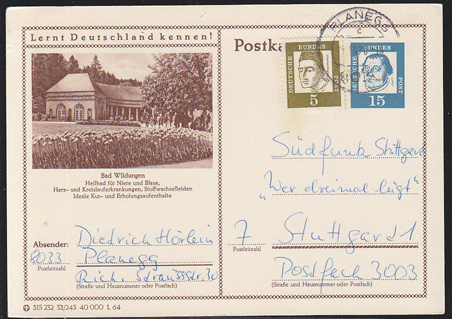 Lernt Deutschland kennen!
Bad Wildungen
Heilbad für Niere und Blase,
Herz- und Kreislauferkrankungen, Stoffwechselleiden
Ideale Kur- und Erholungsaufenthalte
Absender:
Diedrich Hörlein
8033 Planegg
Postleitzahl
Rich. Straussstr.
(Straße und Hausnummer oder Postfach)
315 232 32/243 40 000 1. 64
Postka
PLANEGG
DEUTSCHE BUNDES
5
DEUTSCHE BUNDES
POST
15
Südfunk Stuttgart
"Wer dreimal lügt"
7 Stuttgart 1
Postleitzahl
Postfach 3003
(Straße und Hausnummer oder Postfach)